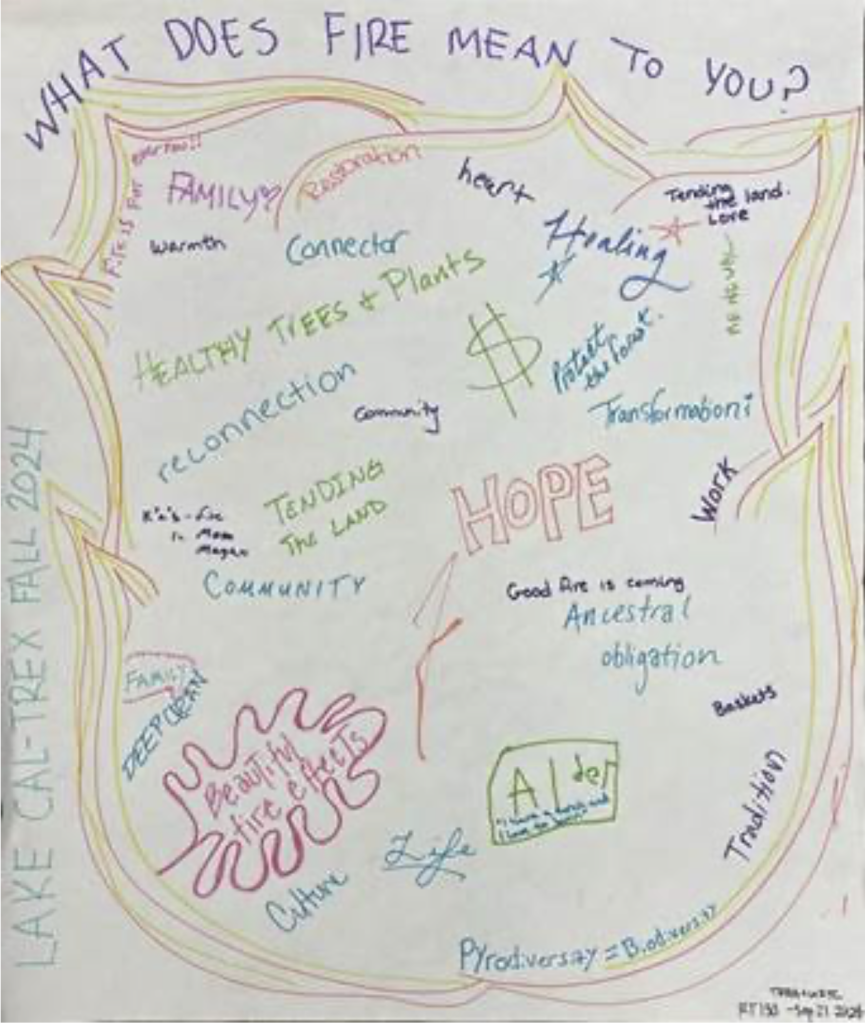 WHAT DOES FIRE MEAN TO YOU?
LAKE CAL-TREX FALL 2024
Fire is for everyone!!
FAMILY
Restoration
heart
Tending
the land.
Love
Warmth
Connector
Healing
RENEWAL
HEALTHY TREES & Plants
$
Protect
the Forest.
reconnection
Community
Transformation!
TENDING
THE LAND
HOPE
Work
COMMUNITY
Good fire is coming
Ancestral
obligation
FAMILY
DEEP CLEAN
Baskets
Beautiful
fire effects
Alder
Tradition
Life
Culture
Pyrodiversity = Biodiversity